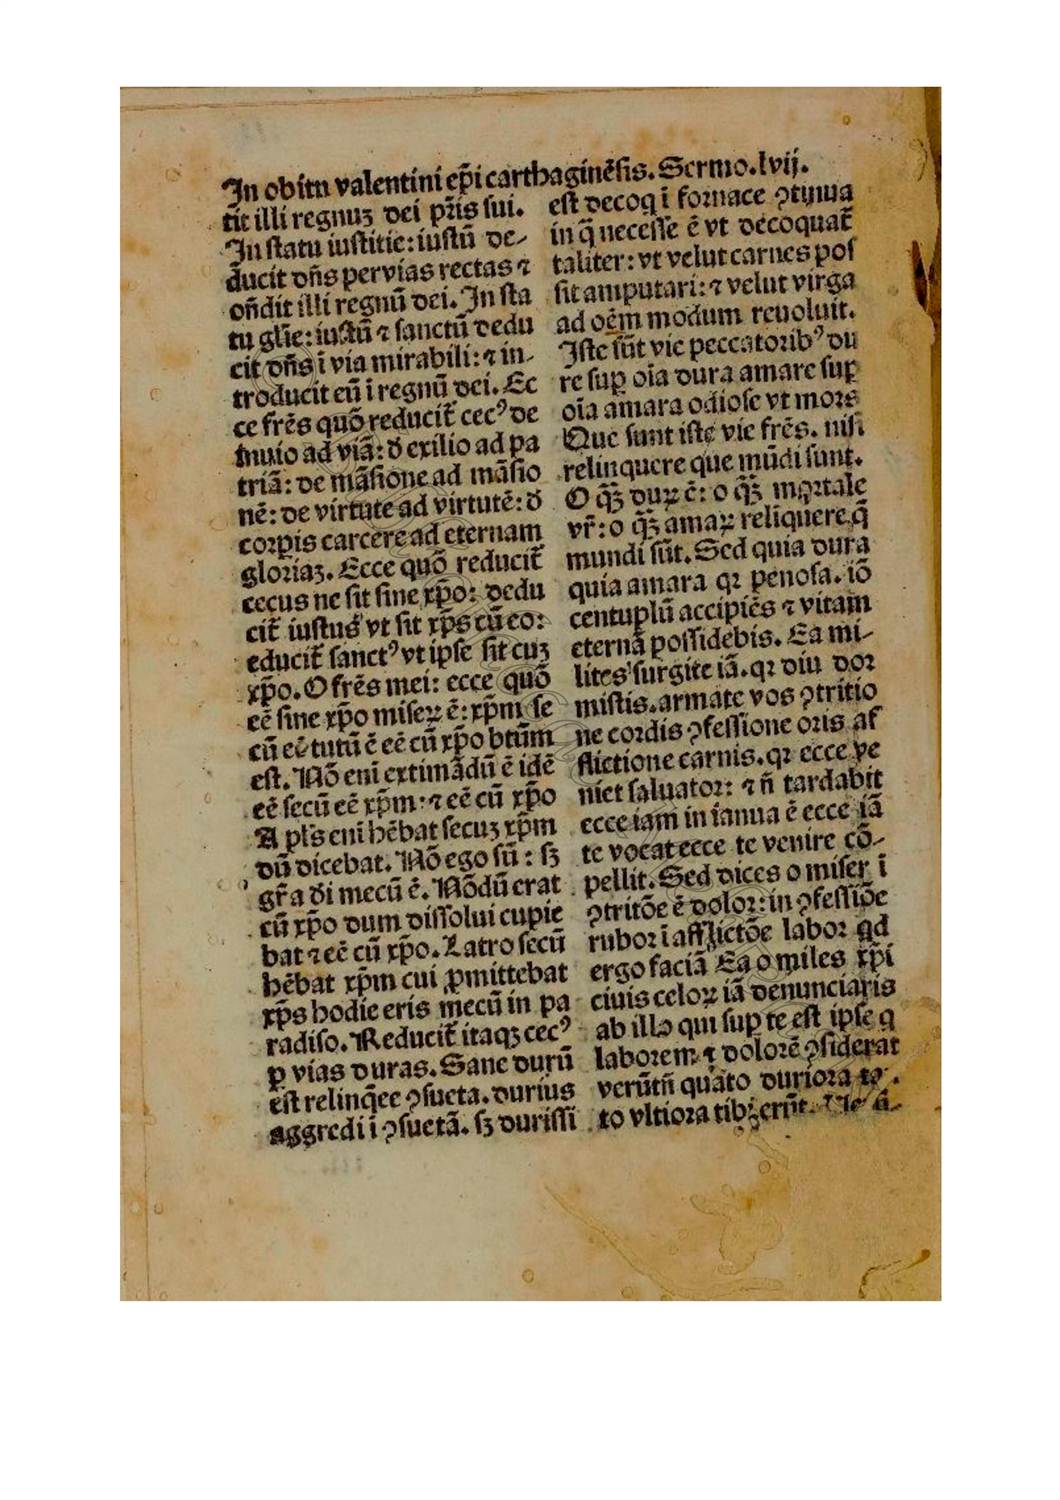 In obitu valentini ep̄i carthaginēsis. Sermo. lvij.
tit illi regnuꝫ dei pr̄is sui.
In statu iustitie: iustū de-
ducit dn̄s per vias rectas ⁊
on̄dit illi regnū dei. In sta
tu gl̄ie: iustū ⁊ sanctū dedu
cit dn̄s ī via mirabili: ⁊ in-
troducit eū ī regnū dei. Ec
ce frēs quō reducit̄ cecꝰ de
inuio ad viā: đ exilio ad pa
triā: de māsione ad māsio
nē: de virtute ad virtutē: đ
corꝑis carcere ad eternam
gloriaꝫ. Ecce quō reducit̄
cecus ne sit sine xp̄o: dedu
cit̄ iustus vt sit xp̄s cū eo:
educit̄ sanctꝰ vt ipse sit cuꝫ
xp̄o. O frēs mei: ecce quō
eē sine xp̄o miseꝝ ē: xp̄m se
cū eē tutū ē eē cū xp̄o btūm
est. Nō enī extimādū ē idē
eē secū eē xp̄m: ⁊ eē cū xp̄o
A pl̄s enī hēbat secuꝫ xp̄m
dū dicebat. Nō ego sū: sꝫ
gr̄a đi mecū ē. Nōdū erat
cū xp̄o dum dissolui cupie
bat ⁊ eē cū xp̄o. Latro secū
hēbat xp̄m cui ꝓmittebat
xp̄s hodie eris mecū in pa
radiso. Reducit̄ itaqꝫ cecꝰ
ꝑ vias duras. Sane durū
est relinq̄ee ꝯsueta. durius
aggredi ī ꝯsuetā. sꝫ durissi
est decoq ī fornace ꝯtinua
in q̄ necesse ē vt decoquat̄
taliter: vt velut carnes pos
sit amputari: ⁊ velut virga
ad oēm modum reuoluit.
Iste sūt vie peccatoribꝰ du
re suꝑ oīa dura amare suꝑ
oīa amara odiose vt mors
Que sunt iste vie frēs. nisi
relinquere que mūdi sunt.
O q̄ꝫ duꝝ ē: o q̄ꝫ mortale
vr̄: o q̄ꝫ amaꝝ reliquere q̄
mundi sūt. Sed quia dura
quia amara qꝛ penosa. iō
centuplū accipiēs ⁊ vitam
eternā possidebis. Ea mi-
lites surgite iā. qꝛ diu dor
mistis. armate vos ꝯtritio
ne cordis ꝯfessione oris af
flictione carnis. qꝛ ecce ve
niet saluator: ⁊ n̄ tardabit
ecce iam in ianua ē ecce iā
te vocat ecce te venire cō-
pellit. Sed dices o miser ī
ꝯtritōe ē dolor: in ꝯfessiōe
rubor ī afflictōe labor qd
ergo faciā Ea o miles xp̄i
ciuis celoꝝ iā denunciaris
ab illo qui suꝑ te est ipse q
laborem ⁊ dolorē ꝯsiderat
verūtn̄ quāto duriora ta
to vltiora tibꝫ erūt.